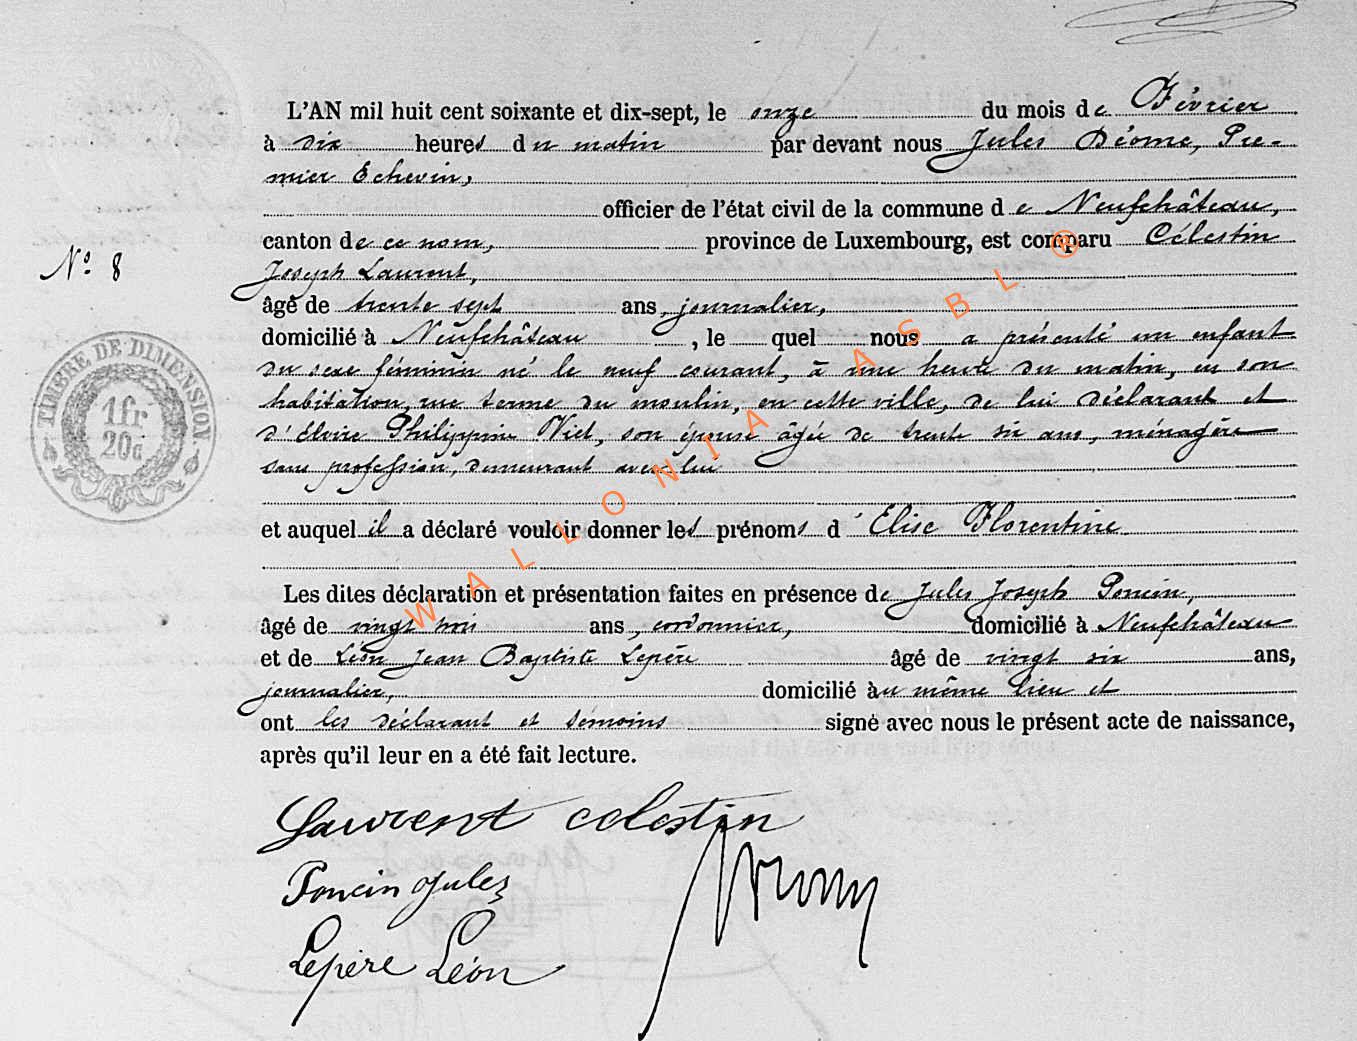 L'AN mil huit cent soixante et dix-sept, le onze du mois de Février
à dix heures du matin par devant nous Jules Déome, Pre-
mier Echevin,
officier de l'état civil de la commune de Neufchâteau,
canton de ce nom, province de Luxembourg, est comparu Célestin
N° 8
Joseph Laurent,
âgé de trente sept ans, journalier,
domicilié à Neufchâteau, le quel nous a présenté un enfant
du sexe féminin né le neuf courant, à une heure du matin, en son
habitation, rue terme du moulin, en cette ville, de lui déclarant et
d'Elvire Philippine Viet, son épouse âgée de trente six ans, ménagère
sans profession, demeurant avec lui
et auquel il a déclaré vouloir donner les prénoms d'Elise Florentine
Les dites déclaration et présentation faites en présence de Jules Joseph Poncin,
âgé de vingt trois ans, cordonnier, domicilié à Neufchâteau
et de Léon Jean Baptiste Lepère âgé de vingt six ans,
journalier, domicilié au même lieu et
ont les déclarant et témoins signé avec nous le présent acte de naissance,
après qu'il leur en a été fait lecture.
Laurent celestin
Poncin Jules
Lepère Léon
TIMBRE DE DIMENSION.
1fr
20c
WALLONIA ASBL ®